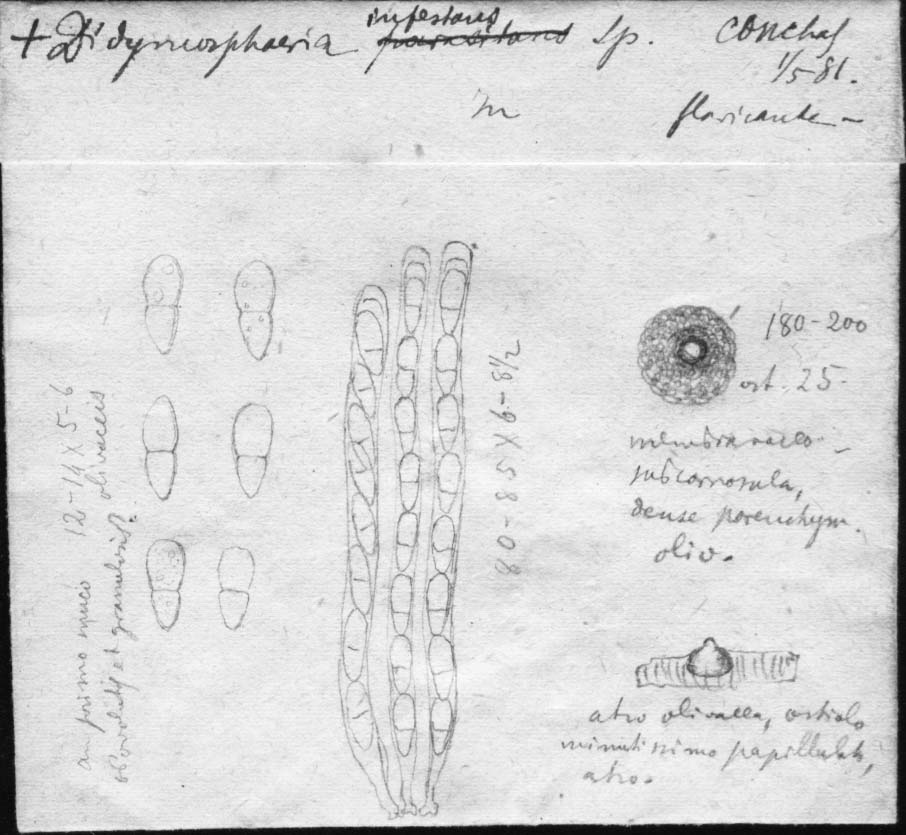 + Didymosphaeria infestans parasitans Sp. Conchas
1/5-81.
m flavicante -
180-200
ost. 25-
membranaceo-
subcarnosula,
dense parenchym.
oliv.
atro olivacea, ostiolo
minutissimo papillulato,
atro.
80-85 X 6-8½
an primo muco
12-14 X 5-6
obvolutis et granulosis? olivaceis